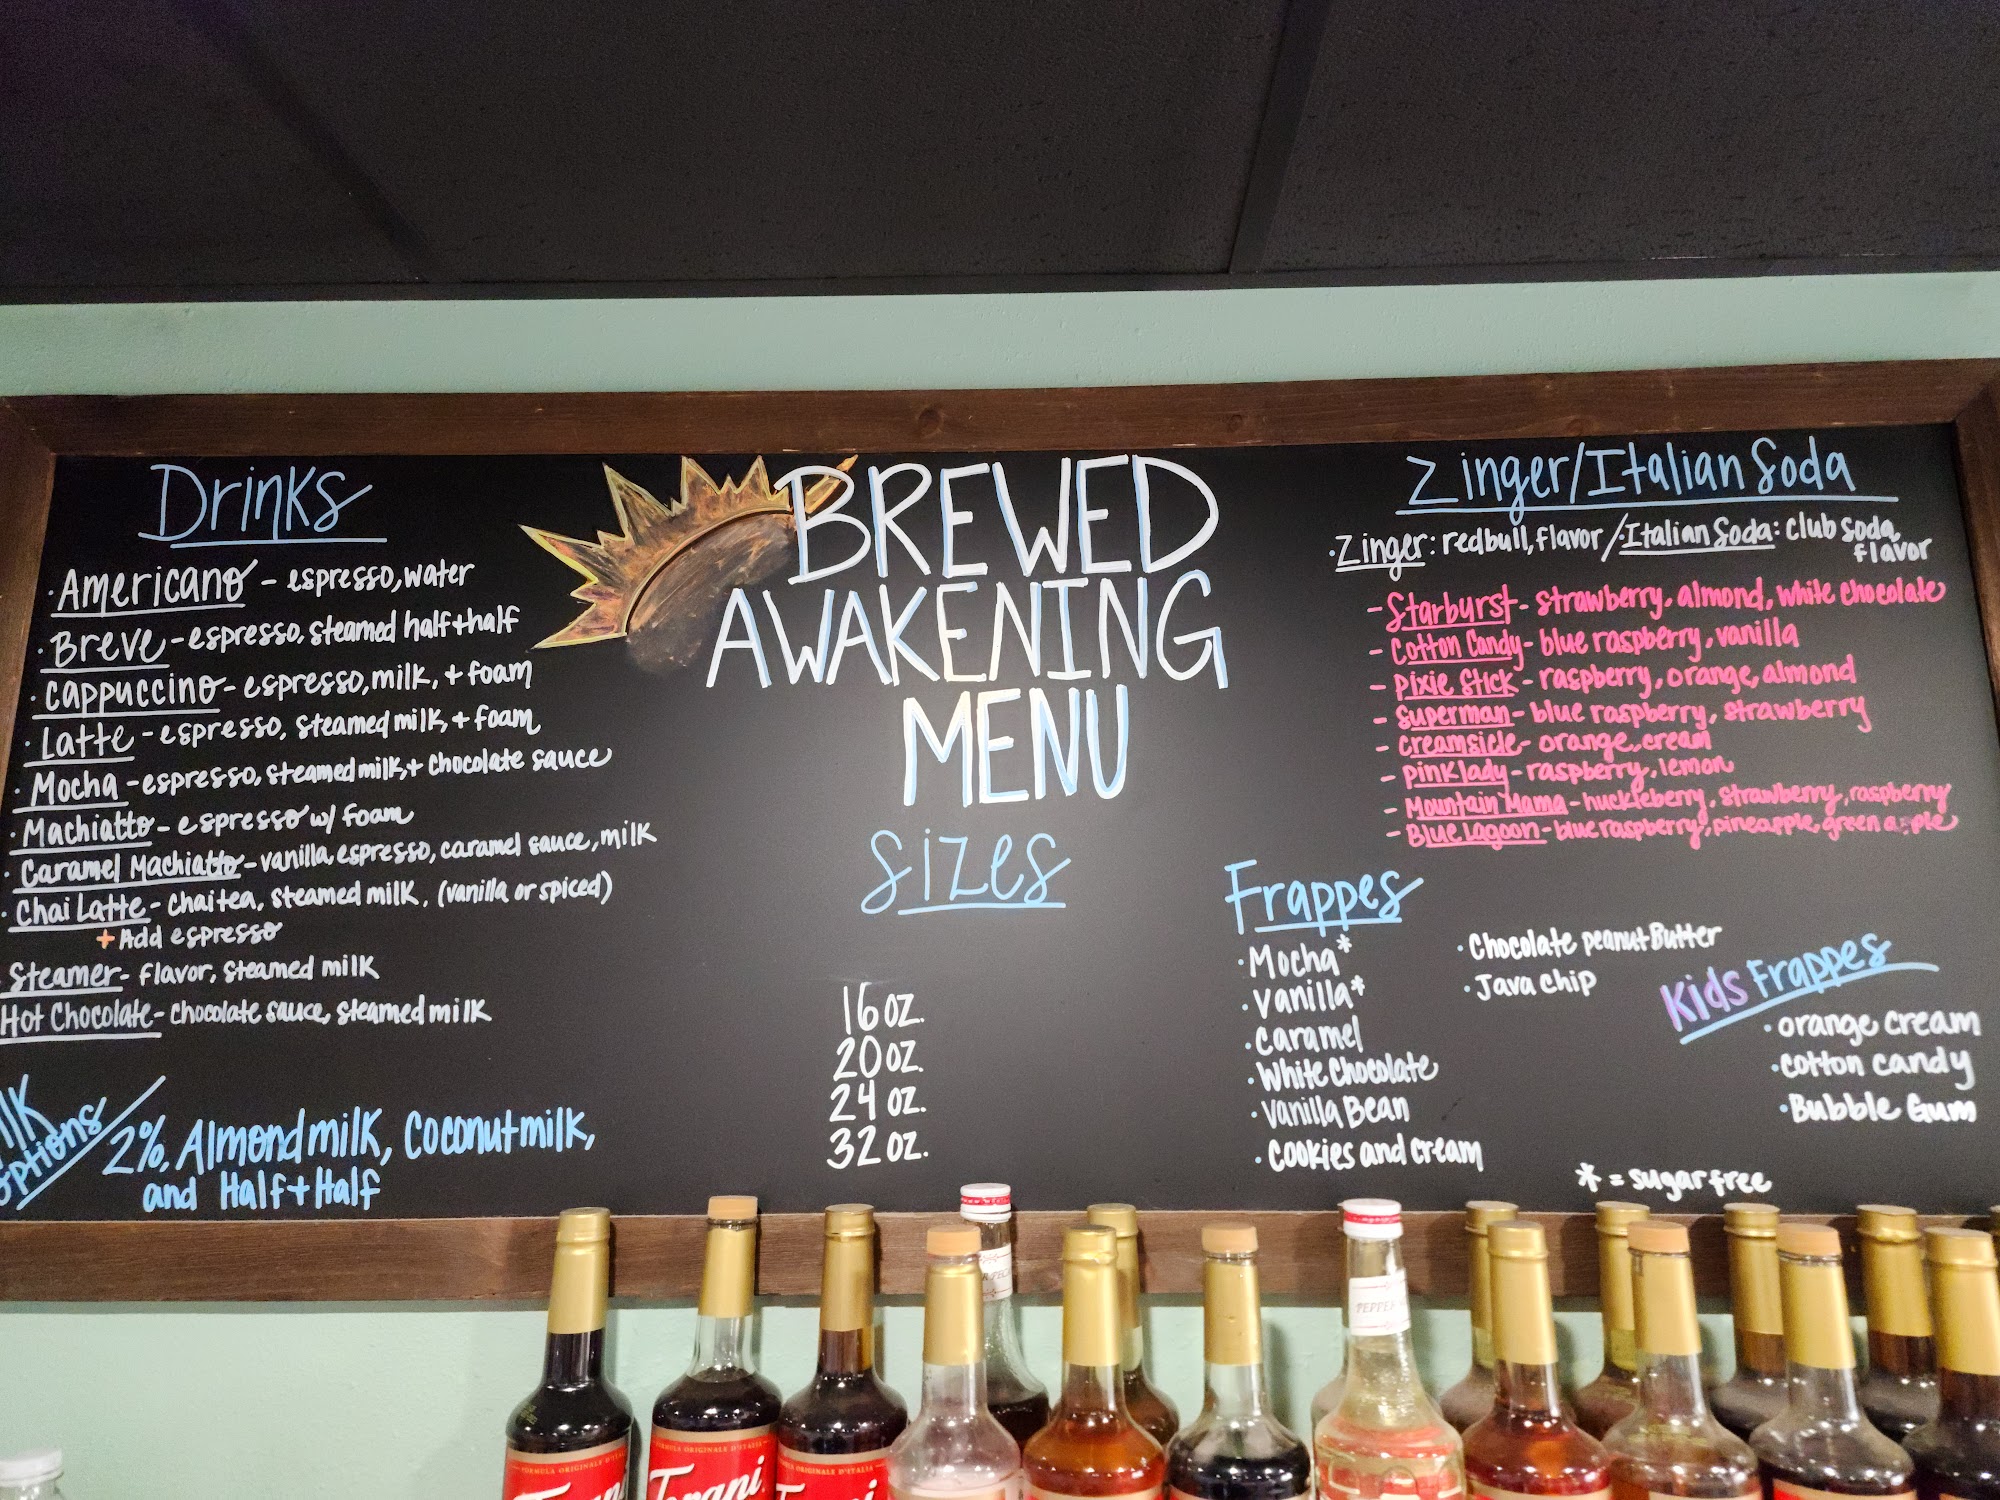 Drinks
· Americano - espresso, water
· Breve - espresso, steamed half+half
· cappuccino - espresso, milk, + foam
· Latte - espresso, steamed milk, + foam
· Mocha - espresso, steamed milk, + chocolate sauce
· Machiatto - espresso w/ foam
· Caramel Machiatto - vanilla, espresso, caramel sauce, milk
· Chai Latte - chai tea, steamed milk, (vanilla or spiced)
+ Add espresso
Steamer - flavor, steamed milk
Hot Chocolate - chocolate sauce, steamed milk
options
2%, Almondmilk, Coconutmilk,
and Half + Half
BREWED
AWAKENING
MENU
Sizes
16 oz.
20 oz.
24 oz.
32 oz.
Zinger/Italian Soda
· Zinger: redbull, flavor / · Italian Soda: club soda,
flavor
- Starburst - strawberry, almond, white chocolate
- Cotton Candy - blue raspberry, vanilla
- Pixie Stick - raspberry, orange, almond
- Superman - blue raspberry, strawberry
- creamsicle - orange, cream
- pink lady - raspberry, lemon
- Mountain Mama - huckleberry, strawberry, raspberry
- Blue Lagoon - blue raspberry, pineapple, green apple
Frappes
· Mocha*
· Vanilla*
· Caramel
· White Chocolate
· Vanilla Bean
· Cookies and cream
· Chocolate peanut Butter
· Java chip
Kids Frappes
· orange cream
· cotton candy
· Bubble Gum
* = sugar free
FORMULA ORIGINALE D'ITALIA
FORMULA ORIGINALE D'ITALIA
Torani
PEPPER